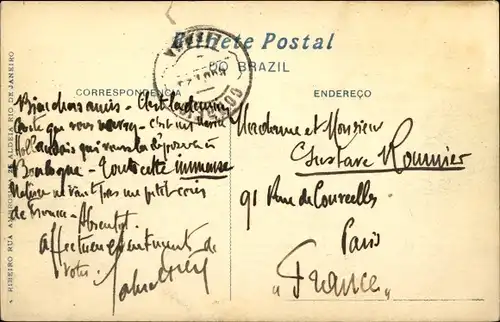 Bilhete Postal
DO BRAZIL
CORRESPONDENCIA
ENDEREÇO
Bien chers amis - C'est la dernière
Carte que vous - c'est un
Hollandais qui vous la déposera à
Boulogne - Toute cette immense
Nature ne vaut pas un petit coin
de France - A bientôt.
Affectueusement
votre
Madame et Monsieur
Gustave
91 Rue de Courcelles
Paris
"France"
RIBEIRO RUA DE ALDEIA RIO DE JANEIRO